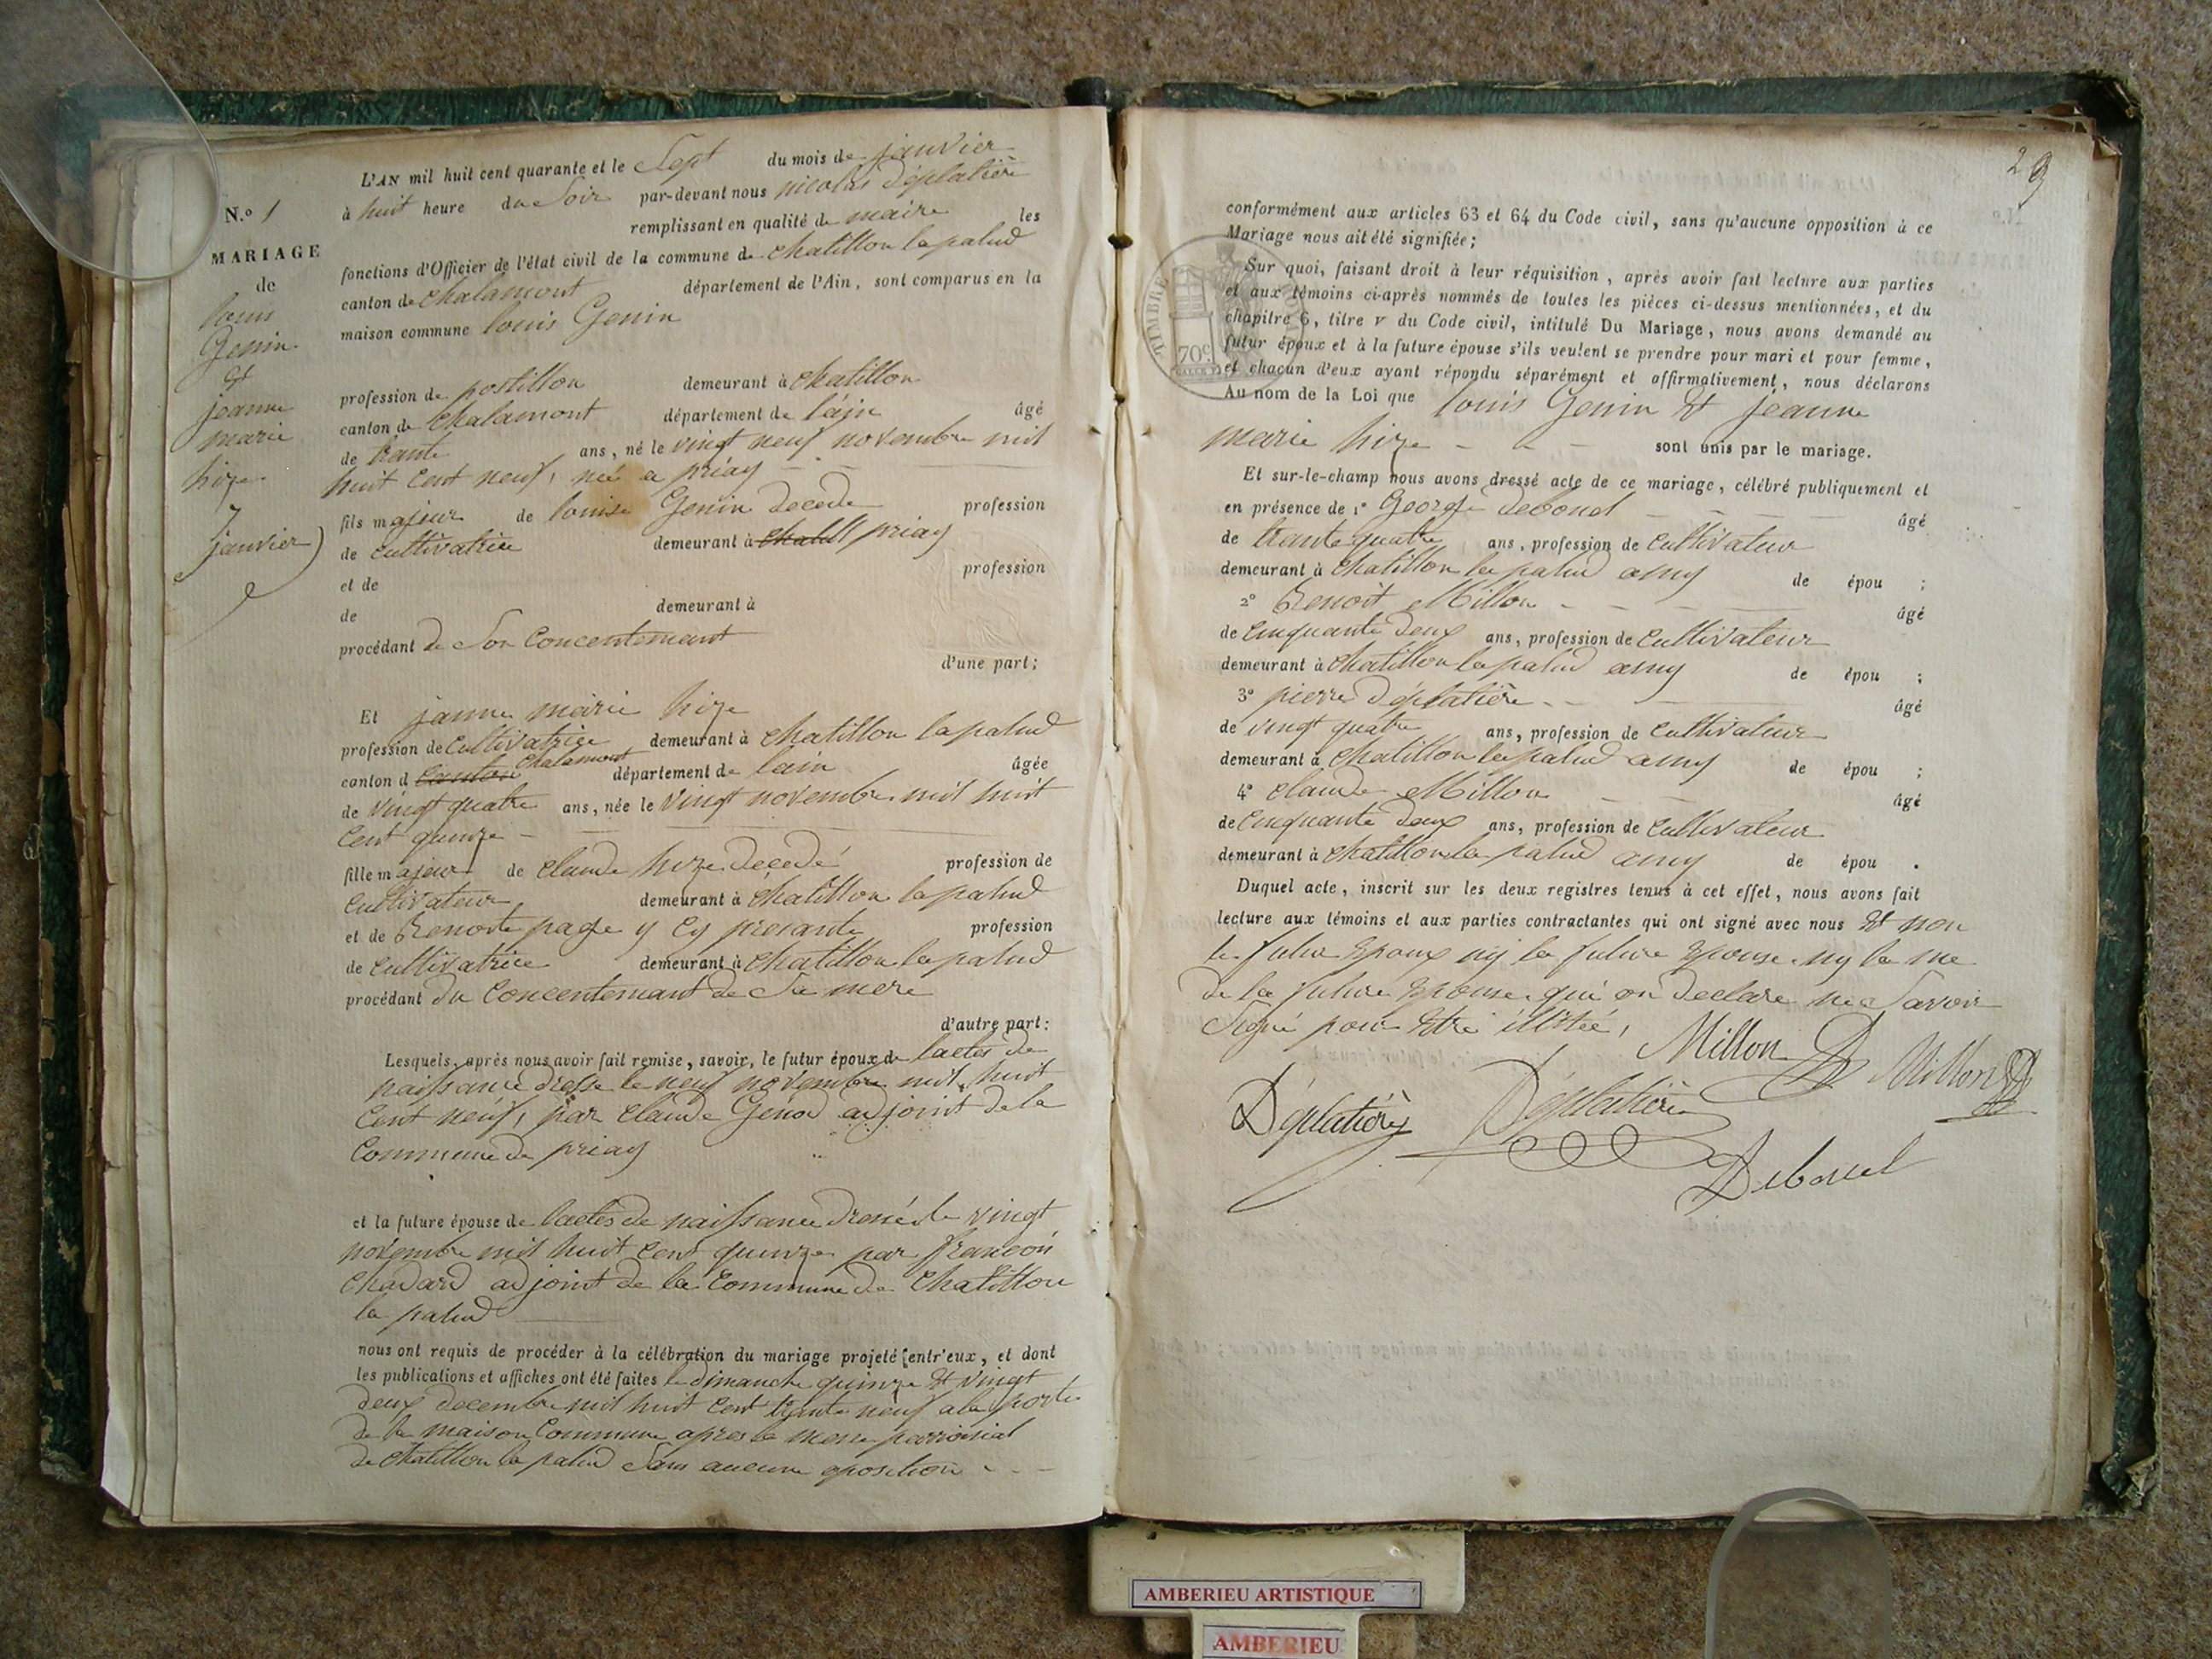 N.o 1
MARIAGE
de
louis
Genin
et
jeanne
marie
hize
7
janvier
L'AN mil huit cent quarante et le Sept du mois de janvier
à huit heure du Soir par-devant nous nicolas Déplatière
remplissant en qualité de maire les
fonctions d'Officier de l'état civil de la commune de chatillon la palud
canton de chalamont département de l'Ain, sont comparus en la
maison commune louis Genin
profession de postillon demeurant à chatillon
canton de chalamont département de l'ain âgé
de trante ans, né le vingt neuf novembre mil
huit cent neuf, né a priay
fils majeur de louise Genin decede profession
de cultivatrice demeurant à chatill priay
et de profession
de demeurant à
procédant de Son Concentemant
d'une part;
Et janne marie hize
profession de cultivatrice demeurant à chatillon la palud
canton d canton chalamont département de lain âgée
de vingt quatre ans, née le vingt novembre mil huit
cent quinze
fille majeur de claude hize decedé profession de
cultivateur demeurant à chatillon la palud
et de Benoite page y cy presante profession
de cultivatrice demeurant à chatillon la palud
procédant du Concentemant de Sa mere
d'autre part:
Lesquels, après nous avoir fait remise, savoir, le futur époux de lactes de
naissance dresse le neuf novembre mil huit
cent neuf, par claude Genod adjoint de la
Commune de priay
et la future épouse de lactes de naissance dressé le vingt
novembre mil huit cent quinze par francois
chadard adjoint de la Commune de Chatillon
la palud
nous ont requis de procéder à la célébration du mariage projeté entr'eux, et dont
les publications et affiches ont été faites le dimanche quinze et vingt
deux decembre mil huit cent trante neuf a la porte
de la maison Commune apres la messe parroisial
de Chatillon la palud Sans aucune oposition
29
conformément aux articles 63 et 64 du Code civil, sans qu'aucune opposition à ce
Mariage nous ait été signifiée;
Sur quoi, faisant droit à leur réquisition, après avoir fait lecture aux parties
et aux témoins ci-après nommés de toutes les pièces ci-dessus mentionnées, et du
chapitre 6, titre v du Code civil, intitulé Du Mariage, nous avons demandé au
futur époux et à la future épouse s'ils veulent se prendre pour mari et pour femme,
et chacun d'eux ayant répondu séparément et affirmativement, nous déclarons
Au nom de la Loi que louis Genin et jeanne
marie hize sont unis par le mariage.
TIMBRE ROYAL
70c
Et sur-le-champ nous avons dressé acte de ce mariage, célébré publiquement et
en présence de 1º George Deboud âgé
de trante quatre ans, profession de cultivateur
demeurant à chatillon la palud amy de épou ;
2º Benoit Millon âgé
de cinquante deux ans, profession de cultivateur
demeurant à chatillon la palud amy de épou ;
3º pierre Déplatière âgé
de vingt quatre ans, profession de cultivateur
demeurant à chatillon la palud amy de épou ;
4º claude Millon âgé
de cinquante deux ans, profession de cultivateur
demeurant à chatillon la palud amy de épou .
Duquel acte, inscrit sur les deux registres tenus à cet effet, nous avons fait
lecture aux témoins et aux parties contractantes qui ont signé avec nous et non
le futur Epoux ny la future Epouse ny la me
de la future Epouse qui on declare ne Savoir
Signé pour Etre illitée,
Millon Millon
Déplatière Déplatière
Deboud
AMBERIEU ARTISTIQUE
AMBERIEU